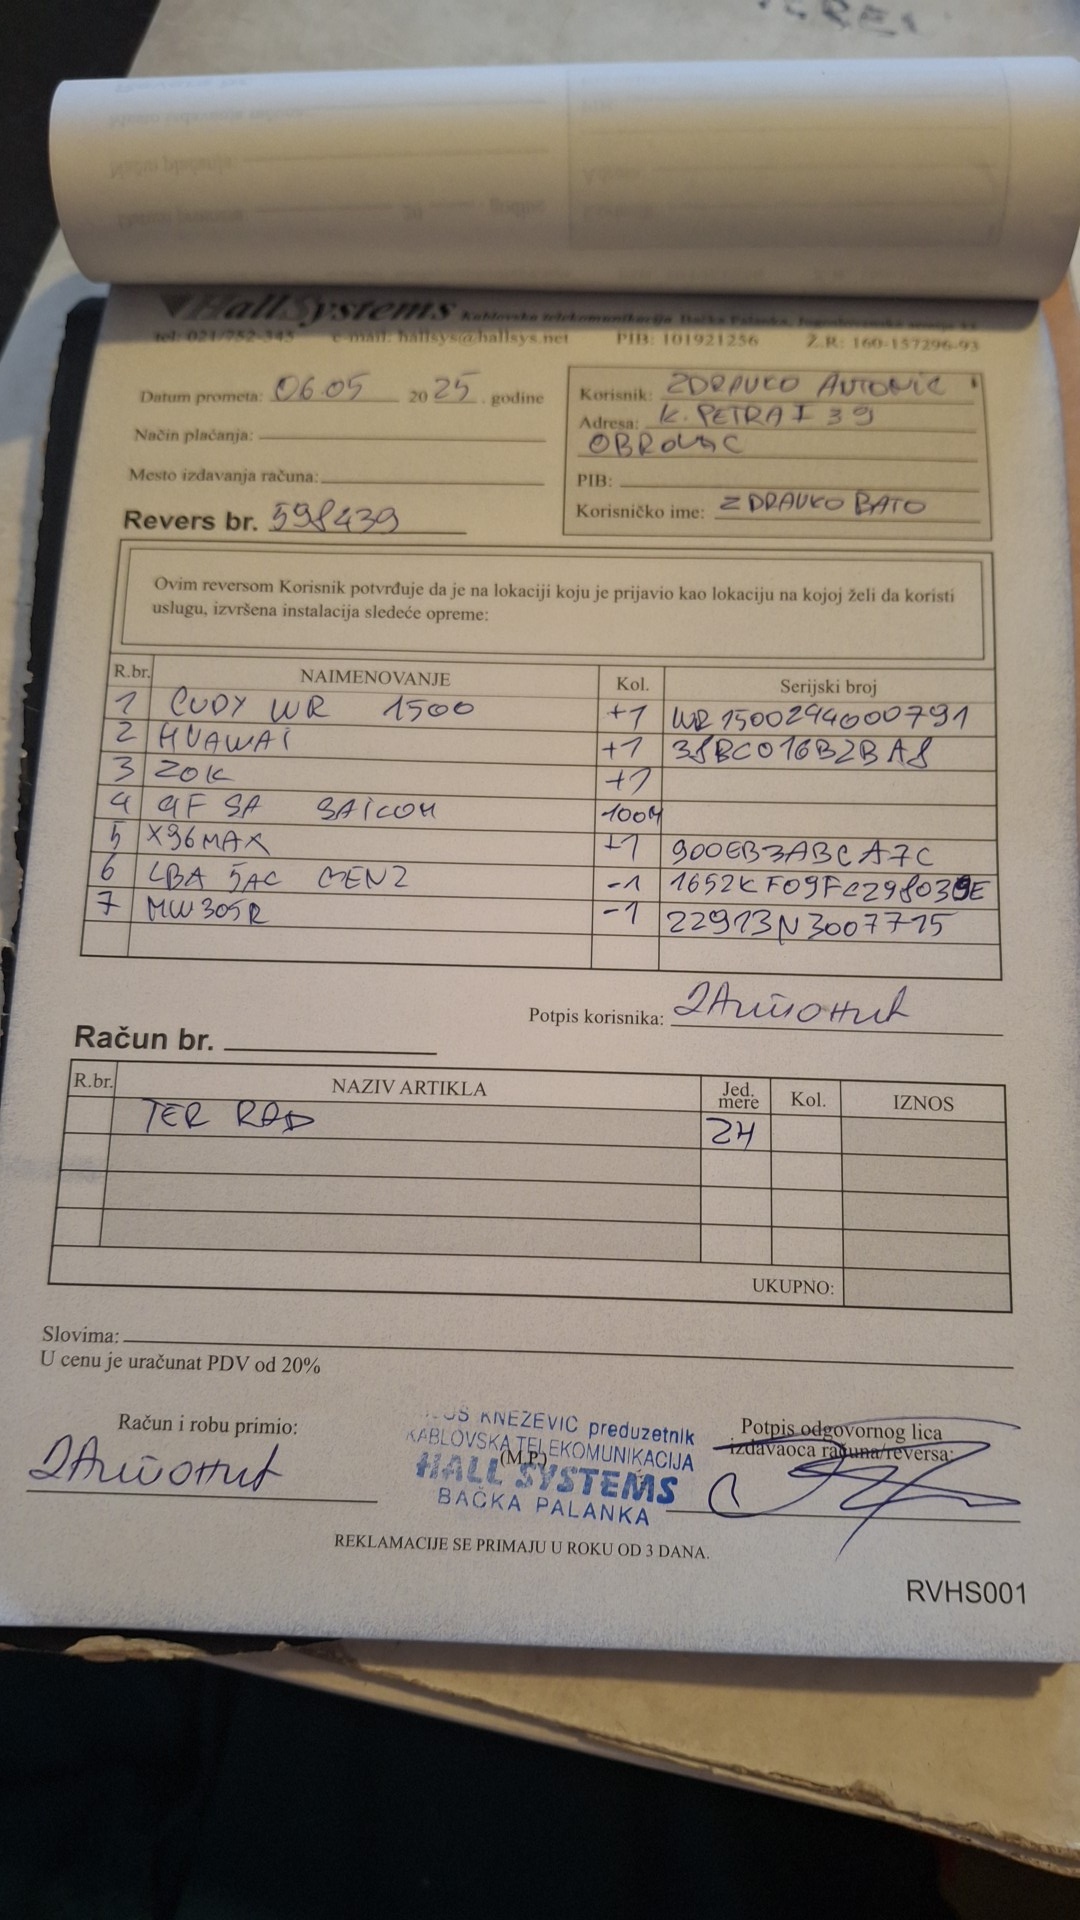 HallSystems Kablovska telekomunikacija Bačka Palanka,
tel: 021/752-345 e-mail: hallsys@hallsys.net PIB: 101921256 Ž.R: 160-157296-93
Datum prometa: 06.05 2025. godine
Način plaćanja:
Mesto izdavanja računa:
Revers br. 598439
Korisnik: ZDRAVKO ANTONIĆ
Adresa: K. PETRA I 39
OBROVAC
PIB:
Korisničko ime: ZDRAVKO BATO
Ovim reversom Korisnik potvrđuje da je na lokaciji koju je prijavio kao lokaciju na kojoj želi da koristi
uslugu, izvršena instalacija sledeće opreme:
R.br. NAIMENOVANJE Kol. Serijski broj
1 CUDY WR 1500 +1 WR1500294000791
2 HUAWAI +1 38BC016B2BA8
3 ZOK +1
4 9F SA SAICOM 100M
5 X96MAX +1 900EB3ABCA7C
6 LBA 5AC GEN2 -1 1652KF09FC298039E
7 MW305R -1 22913N3007715
Potpis korisnika: ЗАнтонић
Račun br.
R.br. NAZIV ARTIKLA Jed. mere Kol. IZNOS
TER RAD 2H
UKUPNO:
Slovima:
U cenu je uračunat PDV od 20%
Račun i robu primio:
ЗАнтонић
KNEŽEVIĆ preduzetnik
KABLOVSKA TELEKOMUNIKACIJA
(M.P.)
HALL SYSTEMS
BAČKA PALANKA
Potpis odgovornog lica
izdavaoca računa/reversa:
REKLAMACIJE SE PRIMAJU U ROKU OD 3 DANA.
RVHS001